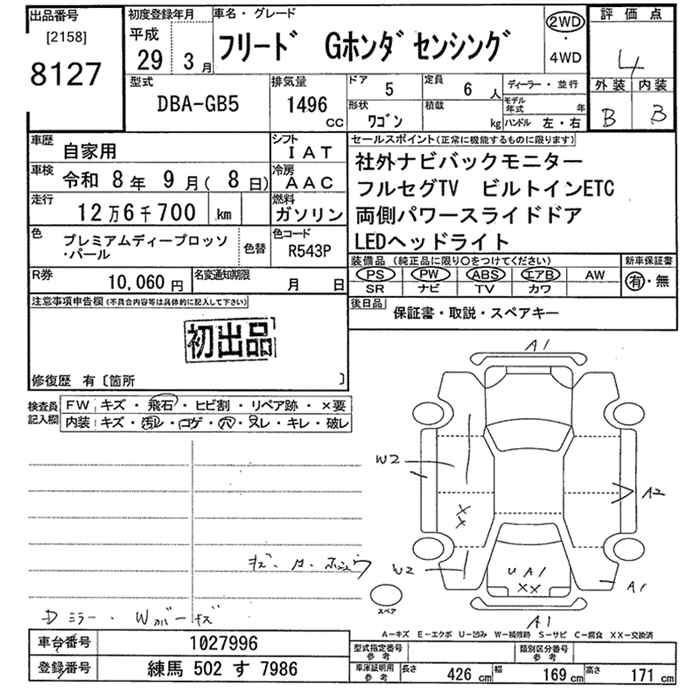 出品番号
[2158]
8127
初度登録年月
平成
29 3月
車名・グレード
フリード Gホンダセンシング
2WD
・
4WD
評価点
4
外装 内装
B B
型式
DBA-GB5
排気量
1496 CC
ドア
5
定員
6 人
形状
ワゴン
積載
kg
ディーラー・並行
モデル年式 年
ハンドル 左・右
車歴
自家用
シフト
IAT
車検
令和 8年 9月( 8日)
冷房
AAC
走行
12万6千700 km
燃料
ガソリン
色
プレミアムディープロッソ
・パール
色替
色コード
R543P
R券
10,060円
名変通知期限
月 日
セールスポイント(正常に機能するものに限ります)
社外ナビバックモニター
フルセグTV ビルトインETC
両側パワースライドドア
LEDヘッドライト
装備品(純正品に限り○をつけてください)
PS PW ABS エアB AW
SR ナビ TV カワ
新車保証書
有・無
後日品
保証書・取説・スペアキー
注意事項申告欄(不具合内容等は具体的に記入して下さい)
初出品
修復歴 有〔箇所 〕
検査員記入欄
FW キズ・飛石・ヒビ割・リペア跡・×要
内装:キズ・汚レ・コゲ・穴・ヌレ・キレ・破レ
Dミラー・Wカバーキズ
A1
W2
XX
A2
W2
UA1
XX
A1
A1
スペア
A−キズ E−エクボ U−凹み W−補修跡 S−サビ C−腐食 XX−交換済
車台番号
1027996
登録番号
練馬 502 す 7986
型式指定番号
参考
類別区分番号
参考
車庫証明用
参考
長さ
426 cm
幅
169 cm
高さ
171 cm